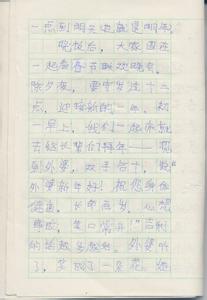 一点到明天也就是明年，
晚饭后，大家围在
一起看春节联欢晚会，
除夕夜，要守岁过十二
点，迎接新的一年。初
一早上，我们一起床就
去给长辈们拜年——
到外婆，双手合十，说"
外婆新年好！祝您身体
健康，长命百岁，心想
事成，笑口常开！"吉祥
的话越多越好，外婆听
了，笑成了一朵花，她